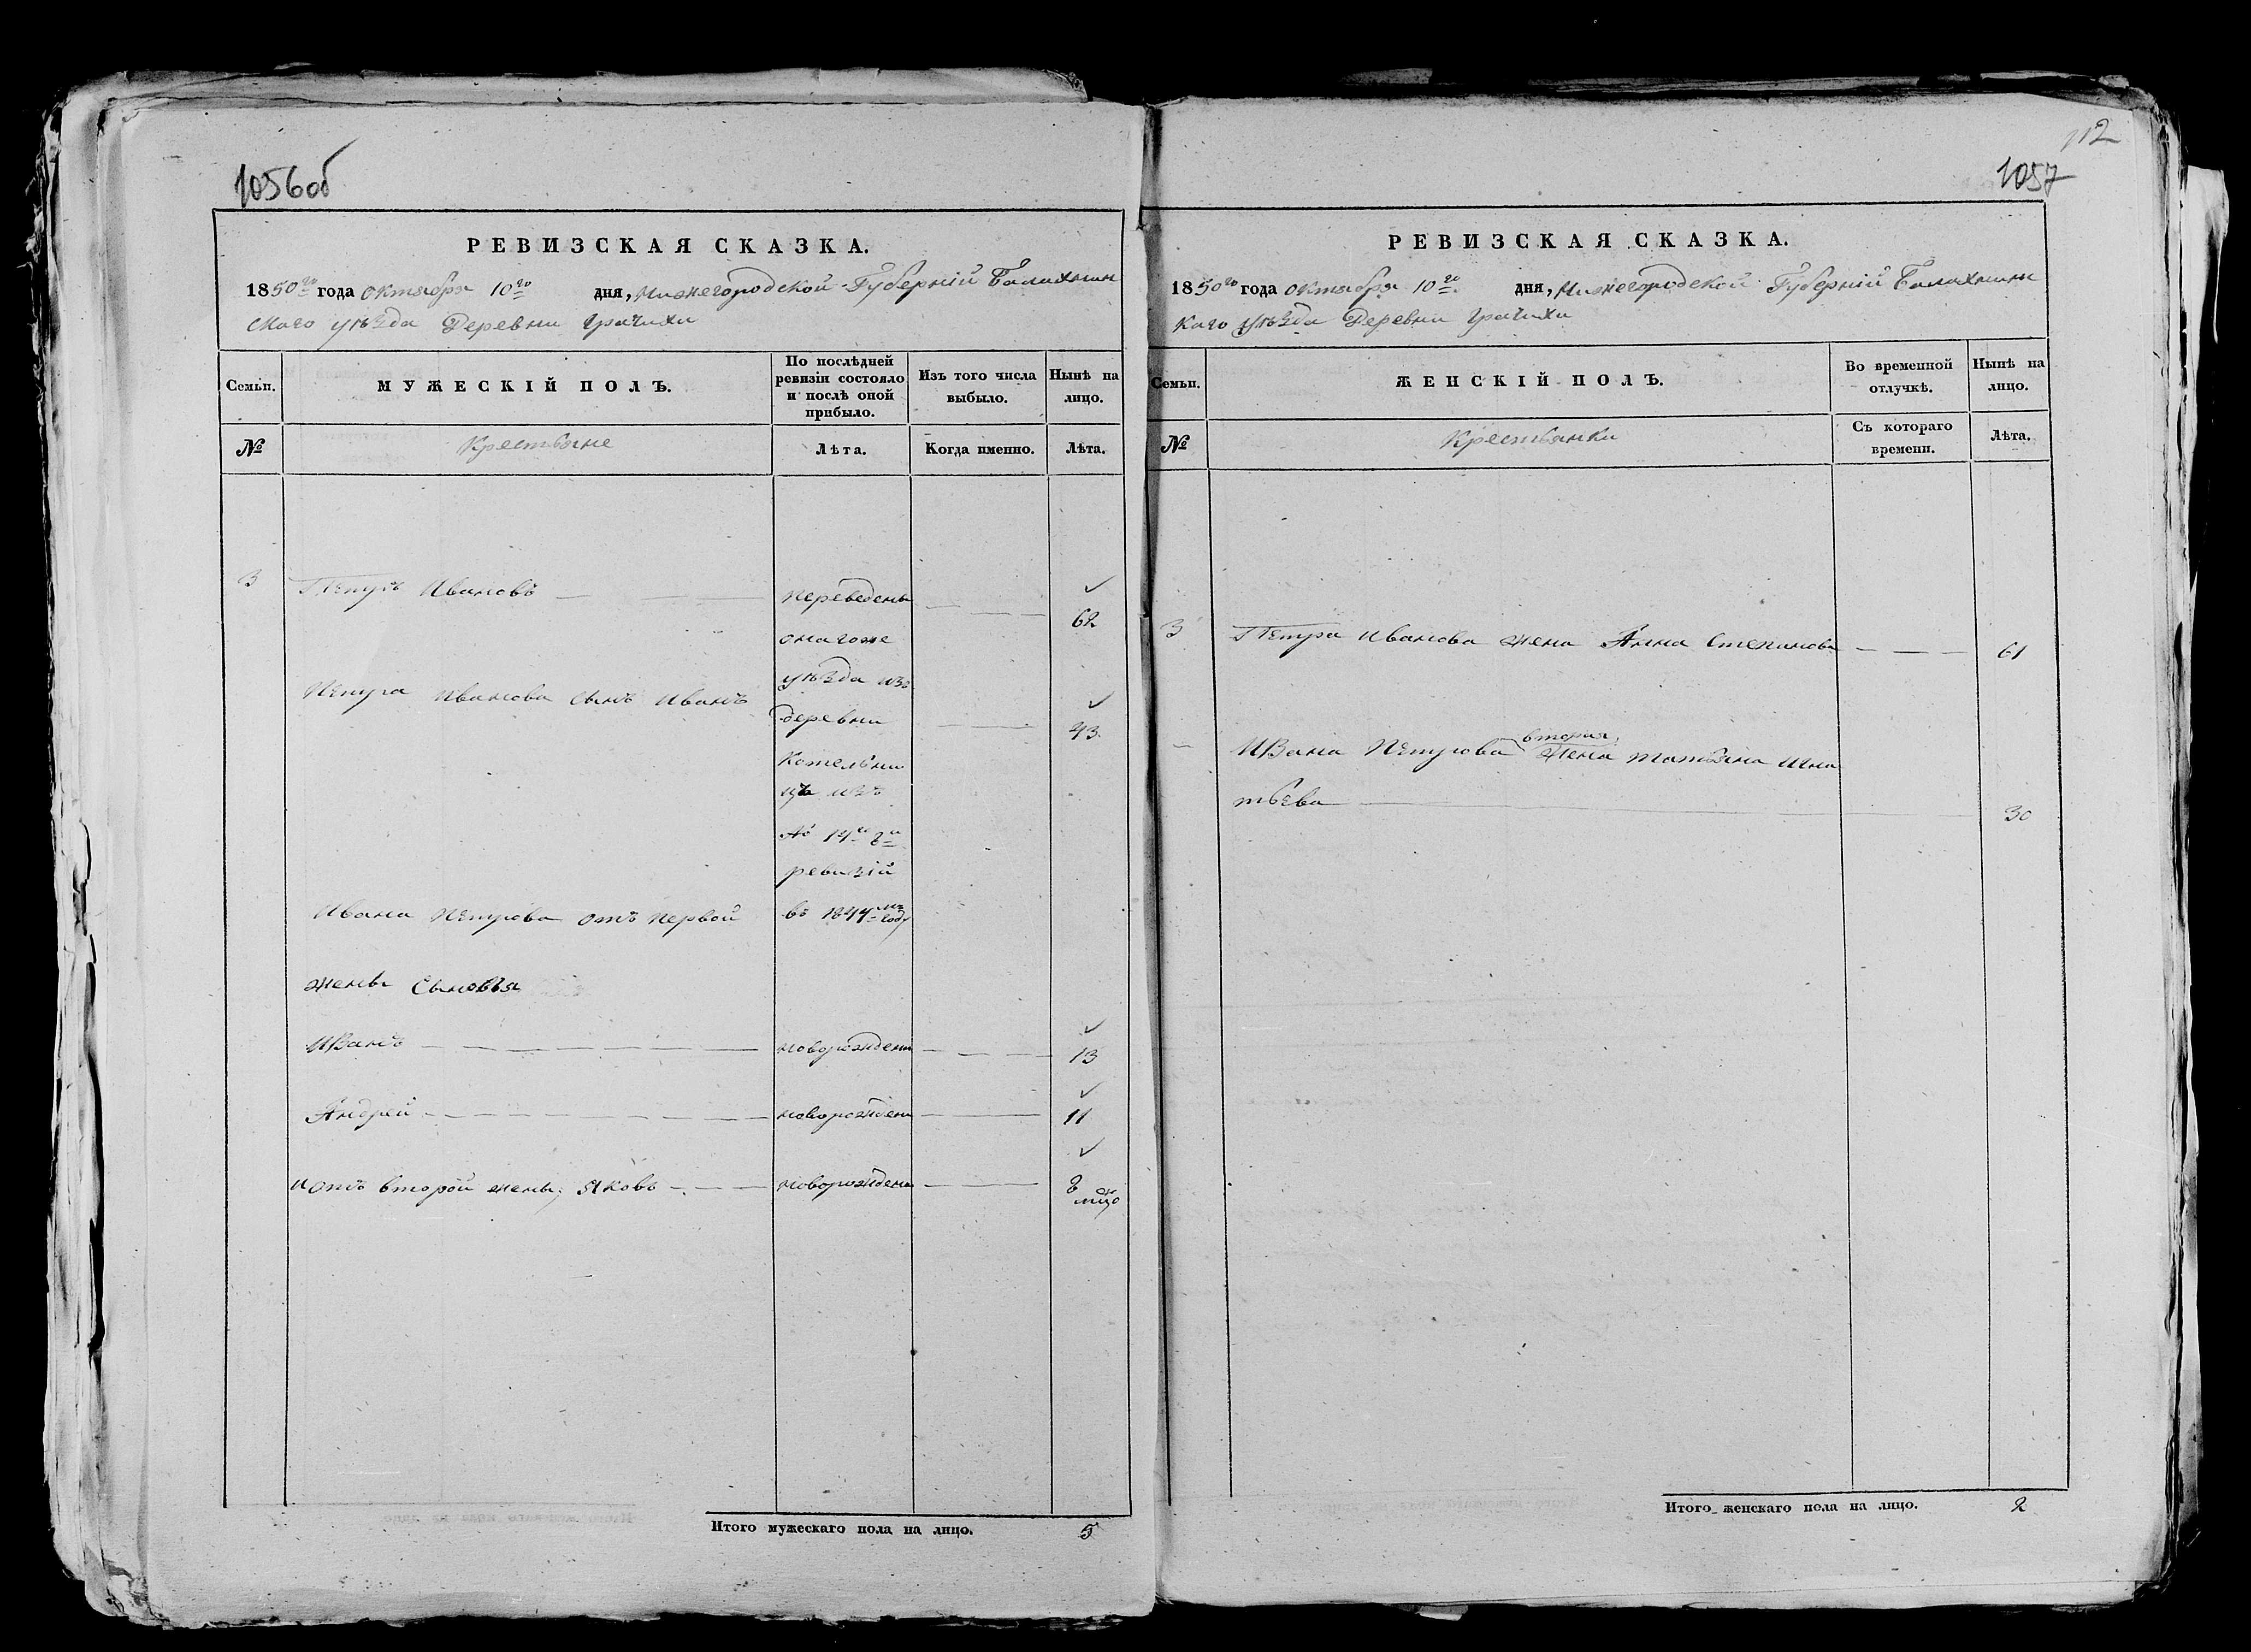 1056об
РЕВИЗСКАЯ СКАЗКА.
1850го года октября 10го дня, Нижегородской Губерній Балахнин
скаго уѣзда Деревни Грачихи
Семьи.
МУЖЕСКІЙ ПОЛЪ.
По послѣдней ревизіи состояло и послѣ оной прибыло.
Изъ того числа выбыло.
Нынѣ на лицо.
№
Крестьяне
Лѣта.
Когда именно.
Лѣта.
3
Петръ Ивановъ
переведены
62
онагоже
уѣзда изъ
Петра Иванова сынъ Иванъ
деревни
43
Котельни
цъ изъ
№ 14го 8й
ревизій
Ивана Петрова отъ первой
въ 1844мъ году
жены Сыновья
Иванъ
новорожденъ
13
Андрей
новорожденъ
11
и отъ второй жены; Яковъ
новорожденъ
8
Итого мужескаго пола на лицо. 5
112
1057
РЕВИЗСКАЯ СКАЗКА.
1850го года октября 10го дня, Нижегородской Губерній Балахнинс
каго уѣзда Деревни Грачихи
Семьи.
ЖЕНСКІЙ ПОЛЪ.
Во временной отлучкѣ.
Нынѣ на лицо.
№
Крестьянки
Съ котораго времени.
Лѣта.
3
Петра Иванова жена Анна Степанова
61
вторая
Ивана Петрова жена татьяна Игна
тьева
30
Итого женскаго пола на лицо. 2